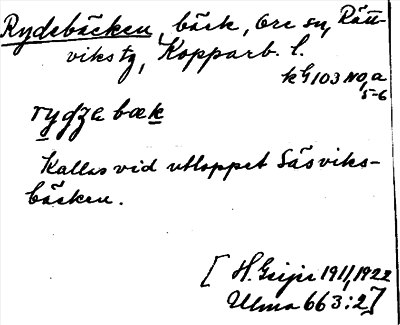 Rydebäcken, bäck, Ore sn, Rätt-
viks tg, Kopparb. l.
kG 103 NO, a
5-6
rydzebæk
Kallas vid utloppet Säsviks-
bäcken.
[H. Geijer 1911, 1922
Ulma 663:2]